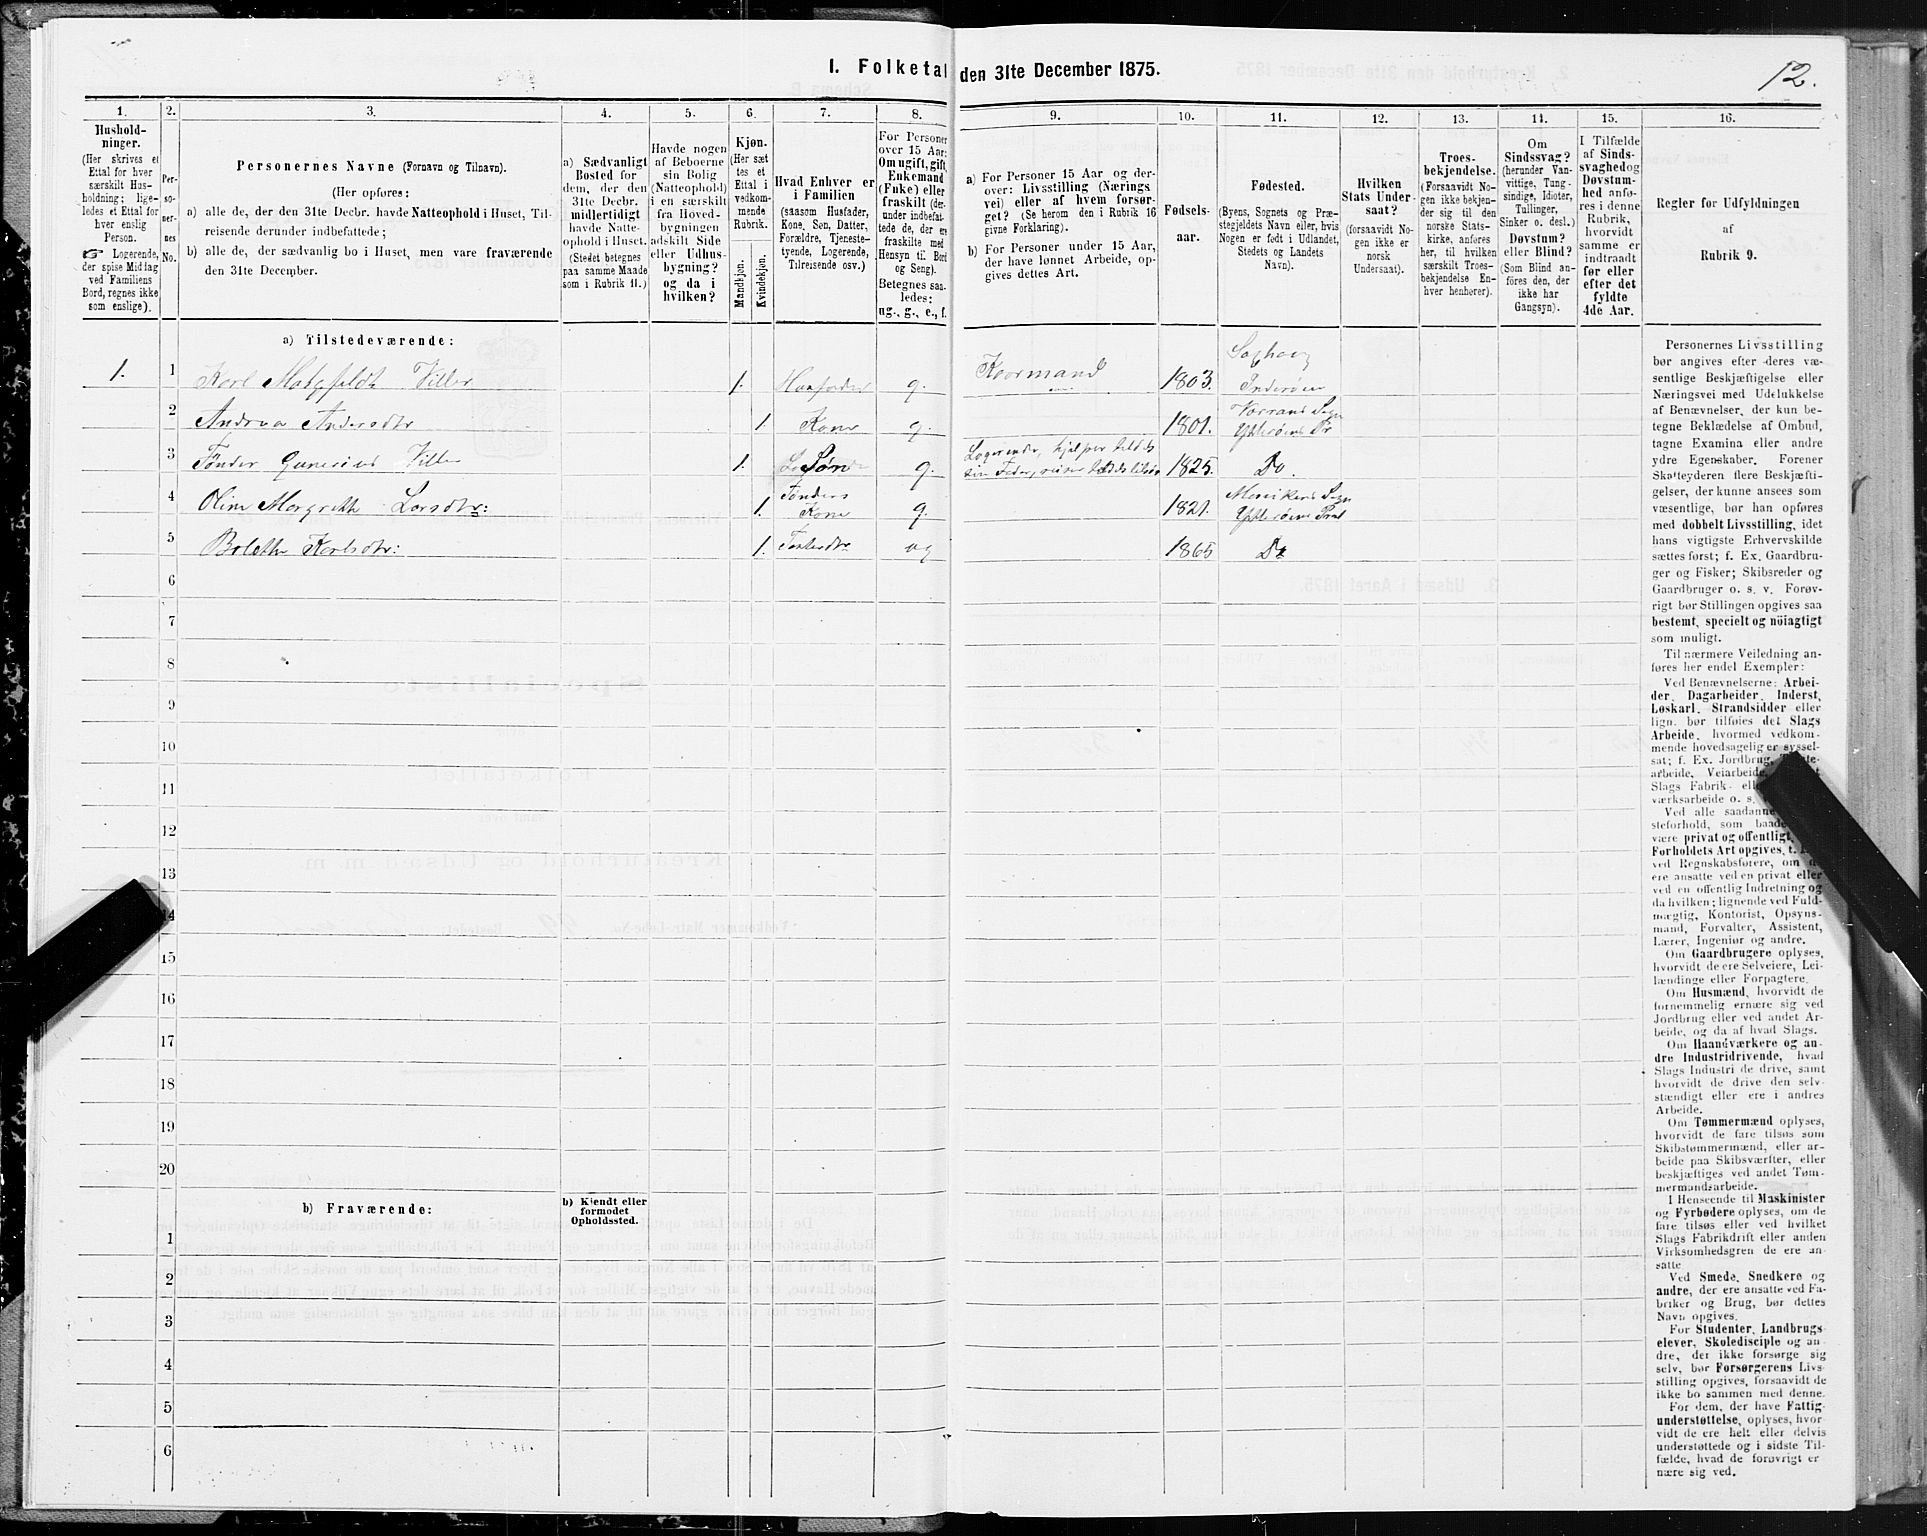 I. Folketal den 31te December 1875.
12.
1. 2. 3. 4. 5. 6. 7. 8. 9. 10. 11. 12. 13. 14. 15. 16.
Hushold-
ninger.
(Her skrives et
Ettal for hver
særskilt Hus-
holdning; lige-
ledes et Ettal for
hver enslig
Person.
☞ Logerende,
der spise Middag
ved Familiens
Bord, regnes ikke
som enslige).
Per-
so-
ner-
nes
No.
Personernes Navne (Fornavn og Tilnavn).
(Her opføres:
a) alle de, der den 31te Decbr. havde Natteophold i Huset, Til-
reisende derunder indbefattede;
b) alle de, der sædvanlig bo i Huset, men vare fraværende
den 31te December.
a) Sædvanligt
Bosted for
dem, der den
31te Decbr.
midlertidigt
havde Natte-
ophold i Huset.
(Stedet betegnes
paa samme Maade
som i Rubrik 11.)
Havde nogen
af Beboerne
sin Bolig
(Natteophold)
i en særskilt
fra Hoved-
bygningen
adskilt Side
eller Udhus-
bygning?
og da i
hvilken?
Kjøn.
(Her sæt
tes et
Ettal i
vedkom-
mende
Rubrik.
Mandkjøn.
Kvindekjøn.
Hvad Enhver er
i Familien
(saasom Husfader,
Kone, Søn, Datter,
Forældre, Tjeneste-
tyende, Logerende,
Tilreisende osv.)
For Personer
over 15 Aar:
Om ugift, gift,
Enkemand
(Enke) eller
fraskilt (der-
under indbefat-
tede de, der ere
fraskilte med
Hensyn til Bord
og Seng).
Betegnes saa-
ledes:
ug., g., e., f.
a) For Personer 15 Aar og der-
over: Livsstilling (Nærings
vei) eller af hvem forsør-
get? (Se herom den i Rubrik 16
givne Forklaring).
b) For Personer under 15 Aar,
der have lønnet Arbeide, op-
gives dettes Art.
Fødsels-
aar.
Fødested.
(Byens, Sognets og Præ-
stegjeldets Navn eller, hvis
Nogen er født i Udlandet,
Stedets og Landets
Navn).
Hvilken
Stats Under-
saat?
(forsaavidt No-
gen ikke er
norsk
Undersaat).
Troes-
bekjendelse.
(Forsaavidt No-
gen ikke bekjen-
der sig til den
norske Stats-
kirke, anføres
her, til hvilken
særskilt Troes-
bekjendelse En-
hver henhører).
Om
Sindssvag?
(herunder Van-
vittige, Tung-
sindige, Idioter,
Tullinger,
Sinker o. desl.)
Døvstum?
eller Blind?
(Som Blind an-
føres den, der
ikke har
Gangsyn).
I Tilfælde
af Sinds-
svaghed og
Døvstum-
hed anfø-
res i denne
Rubrik,
hvorvidt
samme er
indtraadt
før eller
efter det
fyldte
4de Aar.
Regler for Udfyldningen
af
Rubrik 9.
a) Tilstedeværende:
1. 1 Karl Viller 1. g. 1803. Inderøen
2 Andersdtr 1. Kone g. 1801.
3 Tønder Viller 1. Søn g. 1825. Do.
4 Larsdtr: 1. Tønders Kone g. 1821.
5 Karlsdtr: 1. ug 1865 Do
6
7
8
9
10
11
12
13
14
15
16
17
18
19
20
b) Fraværende:
b) Kjendt eller
formodet
Opholdssted.
1
2
3
4
5
6
Personernes Livsstilling
bør angives efter deres væ-
sentlige Beskjæftigelse eller
Næringsvei med Udelukkelse
af Benævnelser, der kun be-
tegne Beklædelse af Ombud,
tagne Examina eller andre
ydre Egenskaber. Forener
Skatteyderen flere Beskjæfti-
gelser, der kunne ansees som
væsentlige, bør han opføres
med dobbelt Livsstilling, idet
hans vigtigste Erhvervskilde
sættes først; f. Ex. Gaardbru-
ger og Fisker; Skibsreder og
Gaardbruger o. s. v. Forøv-
rigt bør Stillingen opgives saa
bestemt, specielt og nöiagtigt
som muligt.
Til nærmere Veiledning an-
føres her endel Exempler:
Ved Benævnelserne: Arbei-
der, Dagarbeider, Inderst,
Løskarl, Strandsidder eller
lign. bør tilføies det Slags
Arbeide, hvormed vedkom-
mende hovedsagelig er syssel-
sat; f. Ex. Jordbrug,
arbeide, Veiarbeide,
Slags Fabrik-
værksarbeide o. s.
Ved alle saadanne
steforhold, som
være privat og offentligt,
Forholdets Art opgives,
ved Regnskabsførere, om
ere ansatte ved en privat eller
ved en offentlig Indretning og
da hvilken; lignende ved Fuld-
mægtig, Kontorist, Opsyns-
mand, Forvalter, Assistent,
Lærer, Ingeniør og andre.
Om Gaardbrugere oplyses,
hvorvidt de ere Selveiere, Lei-
lændinge eller Forpagtere.
Om Husmænd, hvorvidt de
fornemmelig ernære sig ved
Jordbrug eller ved andet Ar-
beide, og da af hvad Slags.
Om Haandværkere og an-
dre Industridrivende, hvad
Slags Industri de drive, samt
hvorvidt de drive den selv-
stændigt eller ere i andres
Arbeide.
Om Tømmermænd oplyses,
hvorvidt de fare tilsøs som
Skibstømmermænd, eller ar-
beide paa Skibsværfter, eller
beskjæftiges ved andet Tøm-
mermandsarbeide.
I Henseende til Maskinister
og Fyrbødere oplyses, om de
fare tilsøs eller ved hvilket
Slags Fabrikdrift eller anden
Virksomhedsgren de ere an-
satte.
Ved Smede, Snedkere og
andre, der ere ansatte ved Fa-
briker og Brug, bør dettes
Navn opgives.
For Studenter, Landbrugs-
elever, Skoledisciple og an-
dre, der ikke forsørge sig
selv, bør Forsørgerens Livs-
stilling opgives, forsaavidt de
ikke bo sammen med denne.
For dem, der have Fattig-
understøttelse, oplyses, hvor-
vidt de ere helt eller delvis
understøttede og i sidste Til-
fælde, hvad de forøvrigt er
nære sig ved.